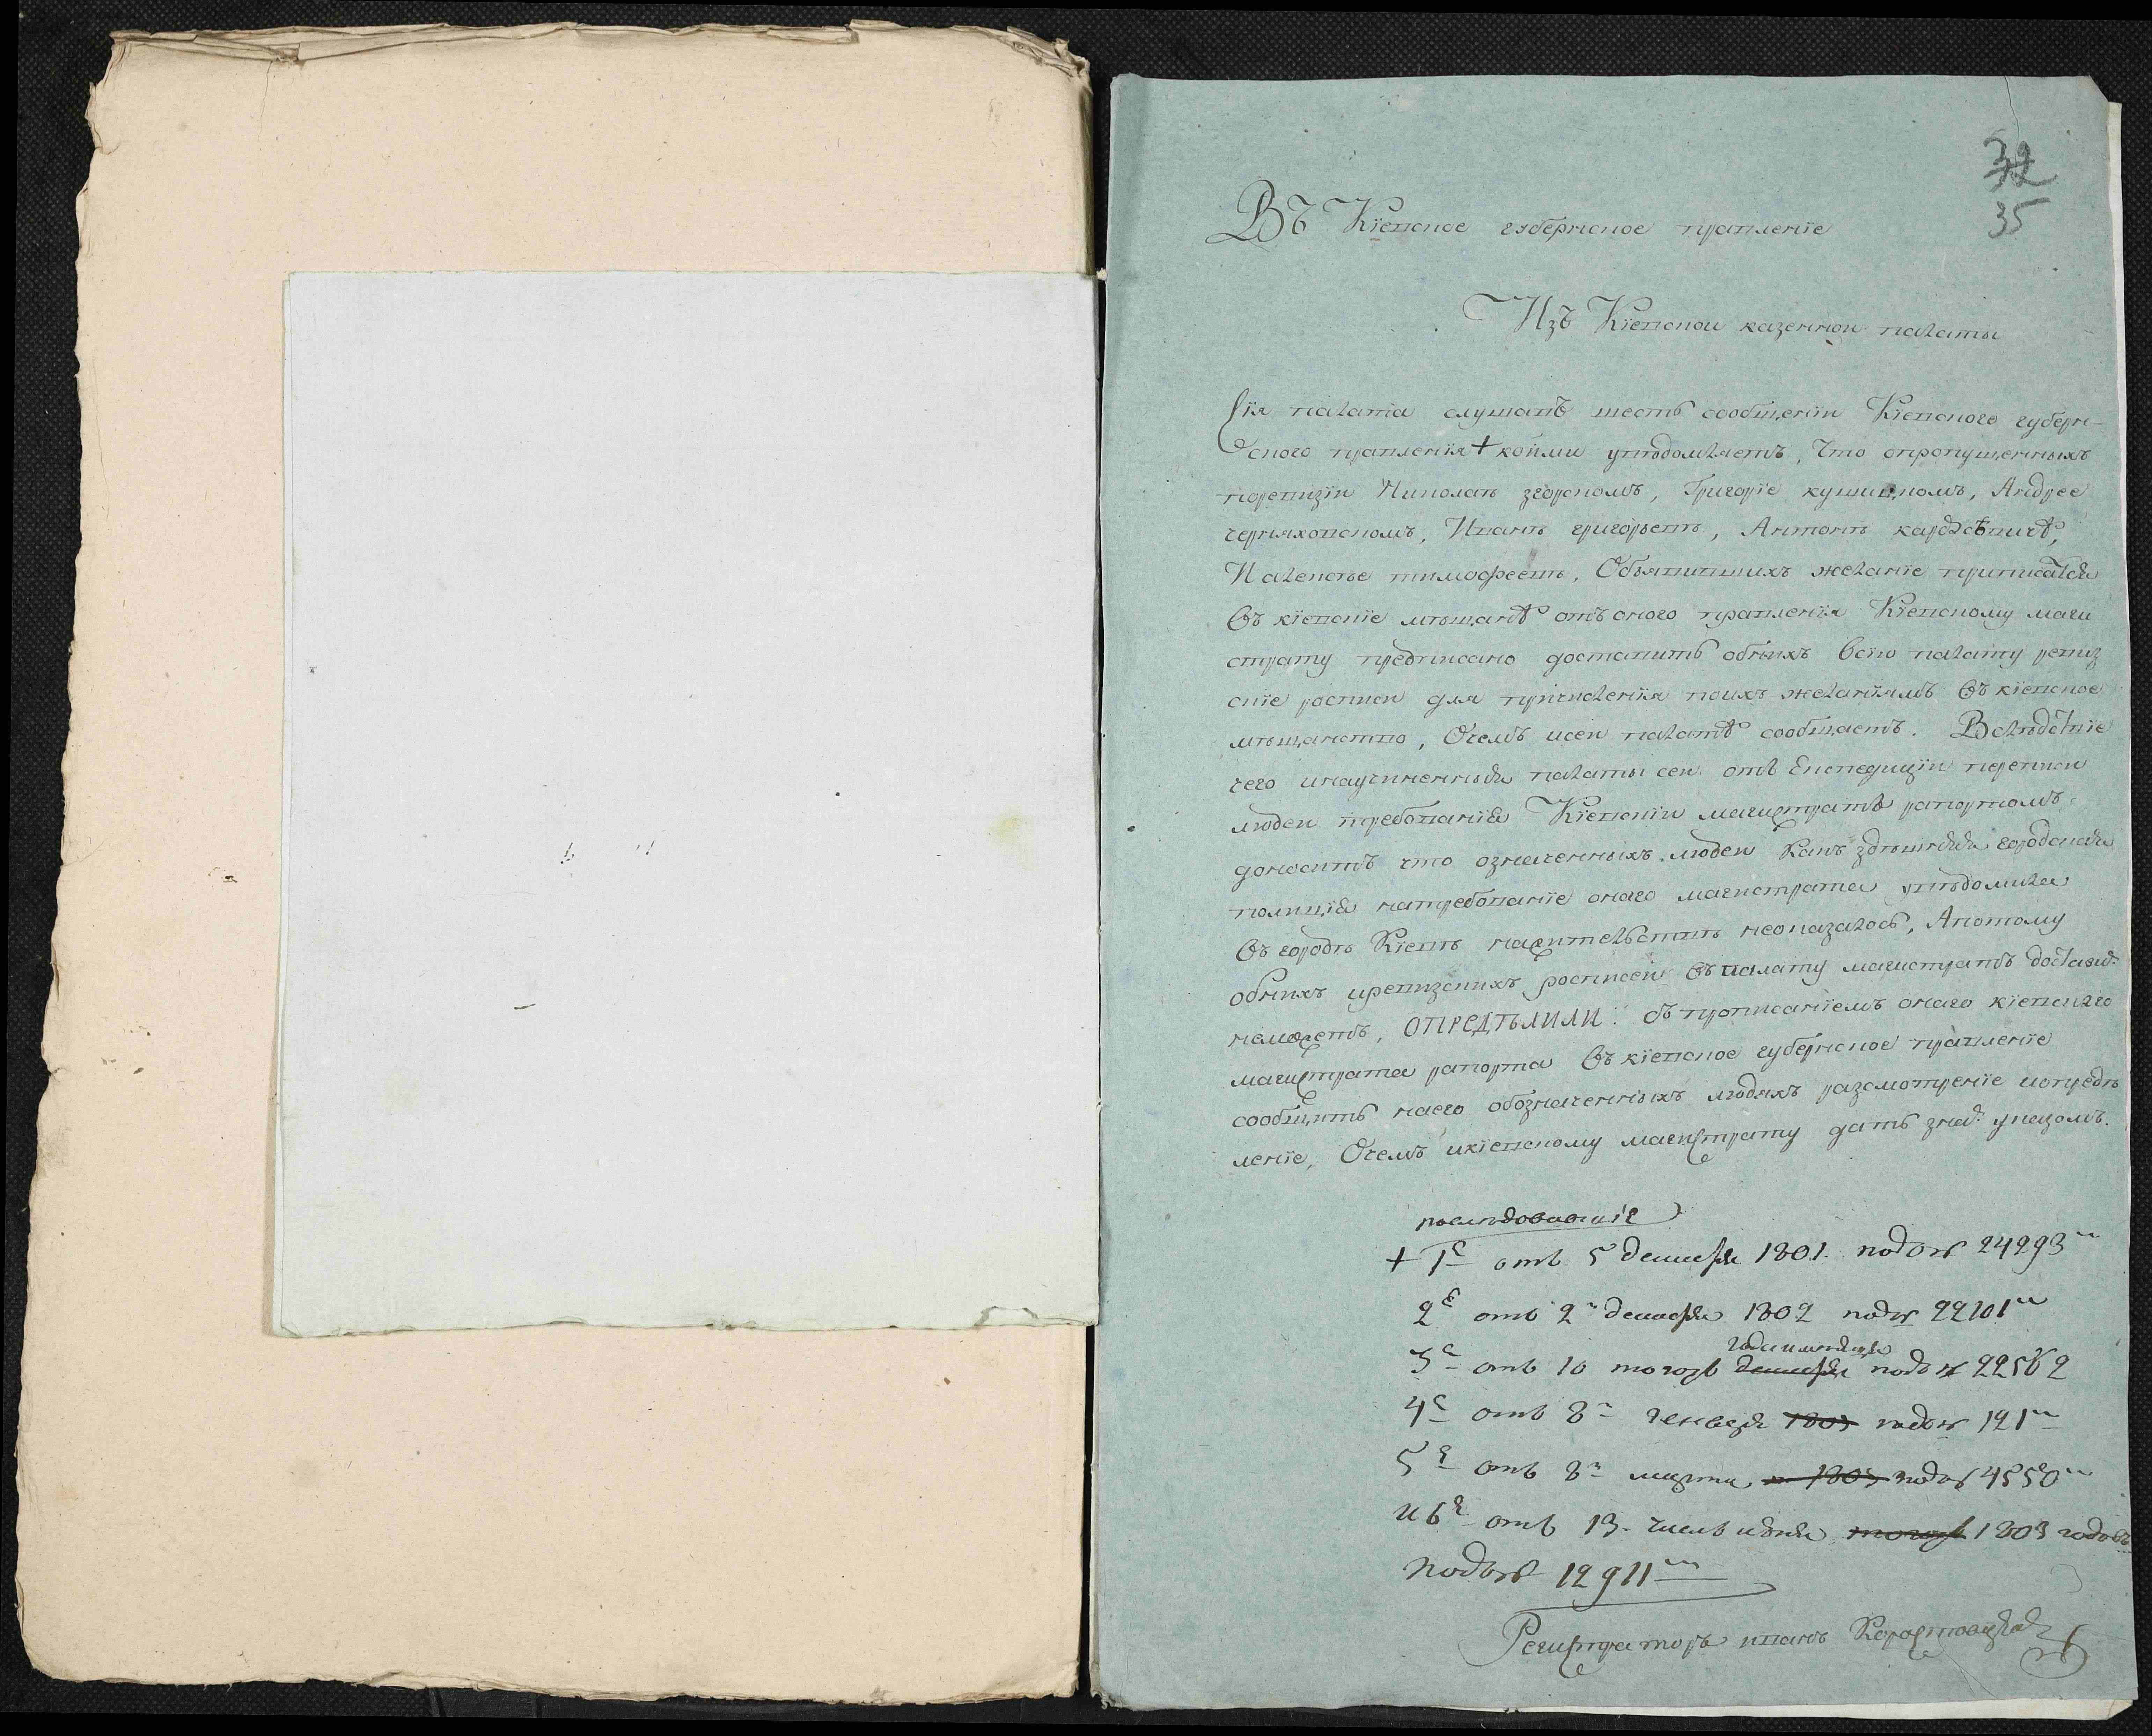 32
35
Въ Кіевское губернское правленіе
Изъ Кіевской казенной палаты
Сія палата слушавъ шесть сообщеніи Кіевского губерн-
ского правленія + коими уведомляетъ, Что опропущенныхъ
поревизіи Николаѣ згорскомъ, Григоріе Андрее
черняховскомъ, Иванѣ григорьевѣ, Антонѣ
Иалексѣе тимофеевѣ, Объявившихъ желаніе приписатся
Въ кіевскіе мѣщанѣ отъ оного правленія Кіевскому маги
страту предписано доставить обнихъ Всію палату ревиз
скіе росписи для причисленія поихъ желаніямъ Въ кіевское
мѣщанство, Очемъ исей палатѣ сообщаетъ. Вслѣдствіе
чего инаучиненныя палаты сей отъ Експедиціи переписи
людей требованія Кіевскій магистратъ рапортомъ
доноситъ что означенныхъ людей Какъ здѣшняя городская
полиція натребованіе оного магистрата увѣдомила
Въ городѣ Кіевѣ нажительствѣ неоказалось, Апотому
обнихъ иревизскихъ росписей Въ палату магистратъ доставит
неможетъ, ОПРЕДѢЛИЛИ: съ прописаніемъ оного кіевского
магистрата рапорта Въ кіевское губернское правленіе
сообщить наего обозначенныхъ людяхъ разсмотреніе иопредѣ
леніе, Очемъ икіевскому магистрату дать знат указомъ.
последовавшіе
+ 1е отъ 5 декабря 1801. подъ № 24293м
2е отъ 2г декабря 1802 подъ № 22101м
года имесяца
3е отъ 10 тогожъ декабря подъ № 22562
4е отъ 8г генваря 1803 подъ № 121м
5е отъ 8г марта 1803 подъ № 4550м
и 6е отъ 13. числъ июня тогожъ 1803 годовъ
подъ № 12911м
Регистраторъ иванъ